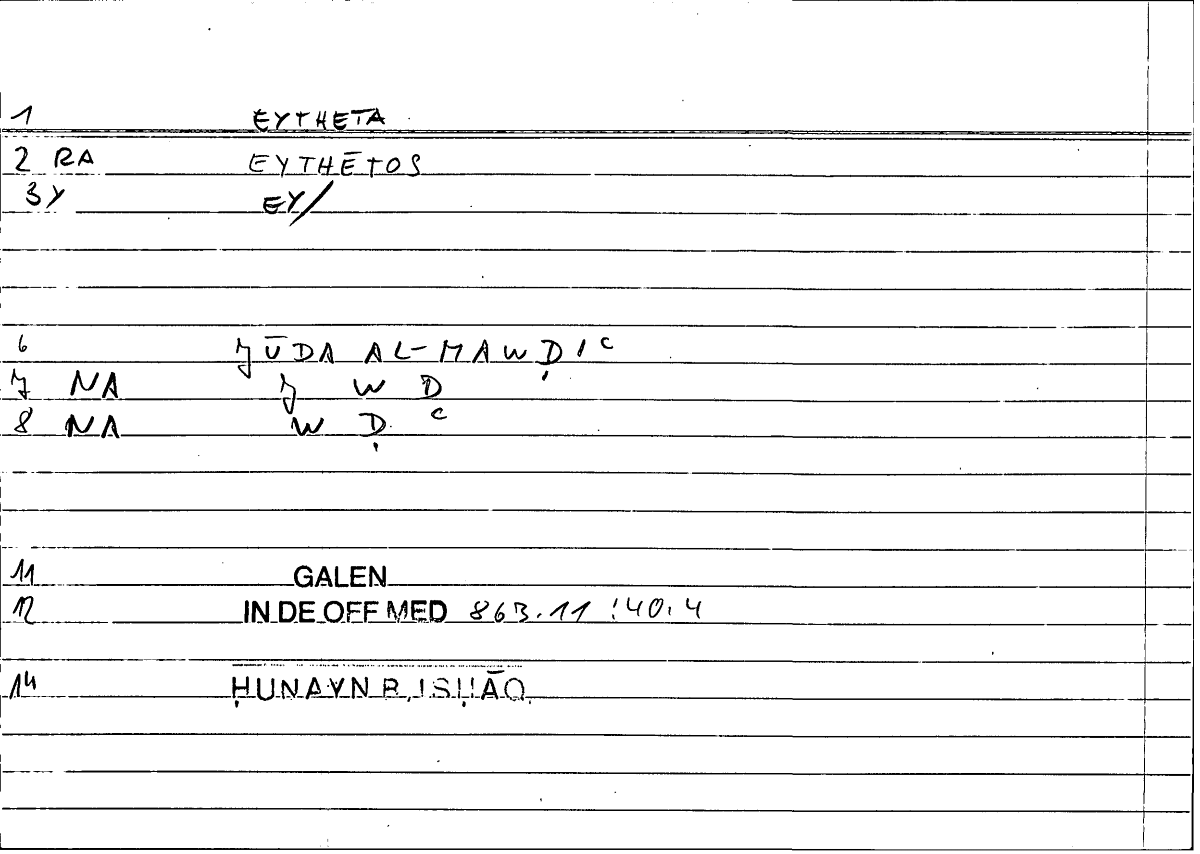 1 EYTHETA
2 RA EYTHĒTOS
3Y EY/
6 JŪDA AL-MAWḌIᶜ
7 NA J W D
8 NA W Ḍ ᶜ
11 GALEN
12 IN DE OFF MED 863.11 :40.4
14 ḤUNAYN B. ISḤĀQ